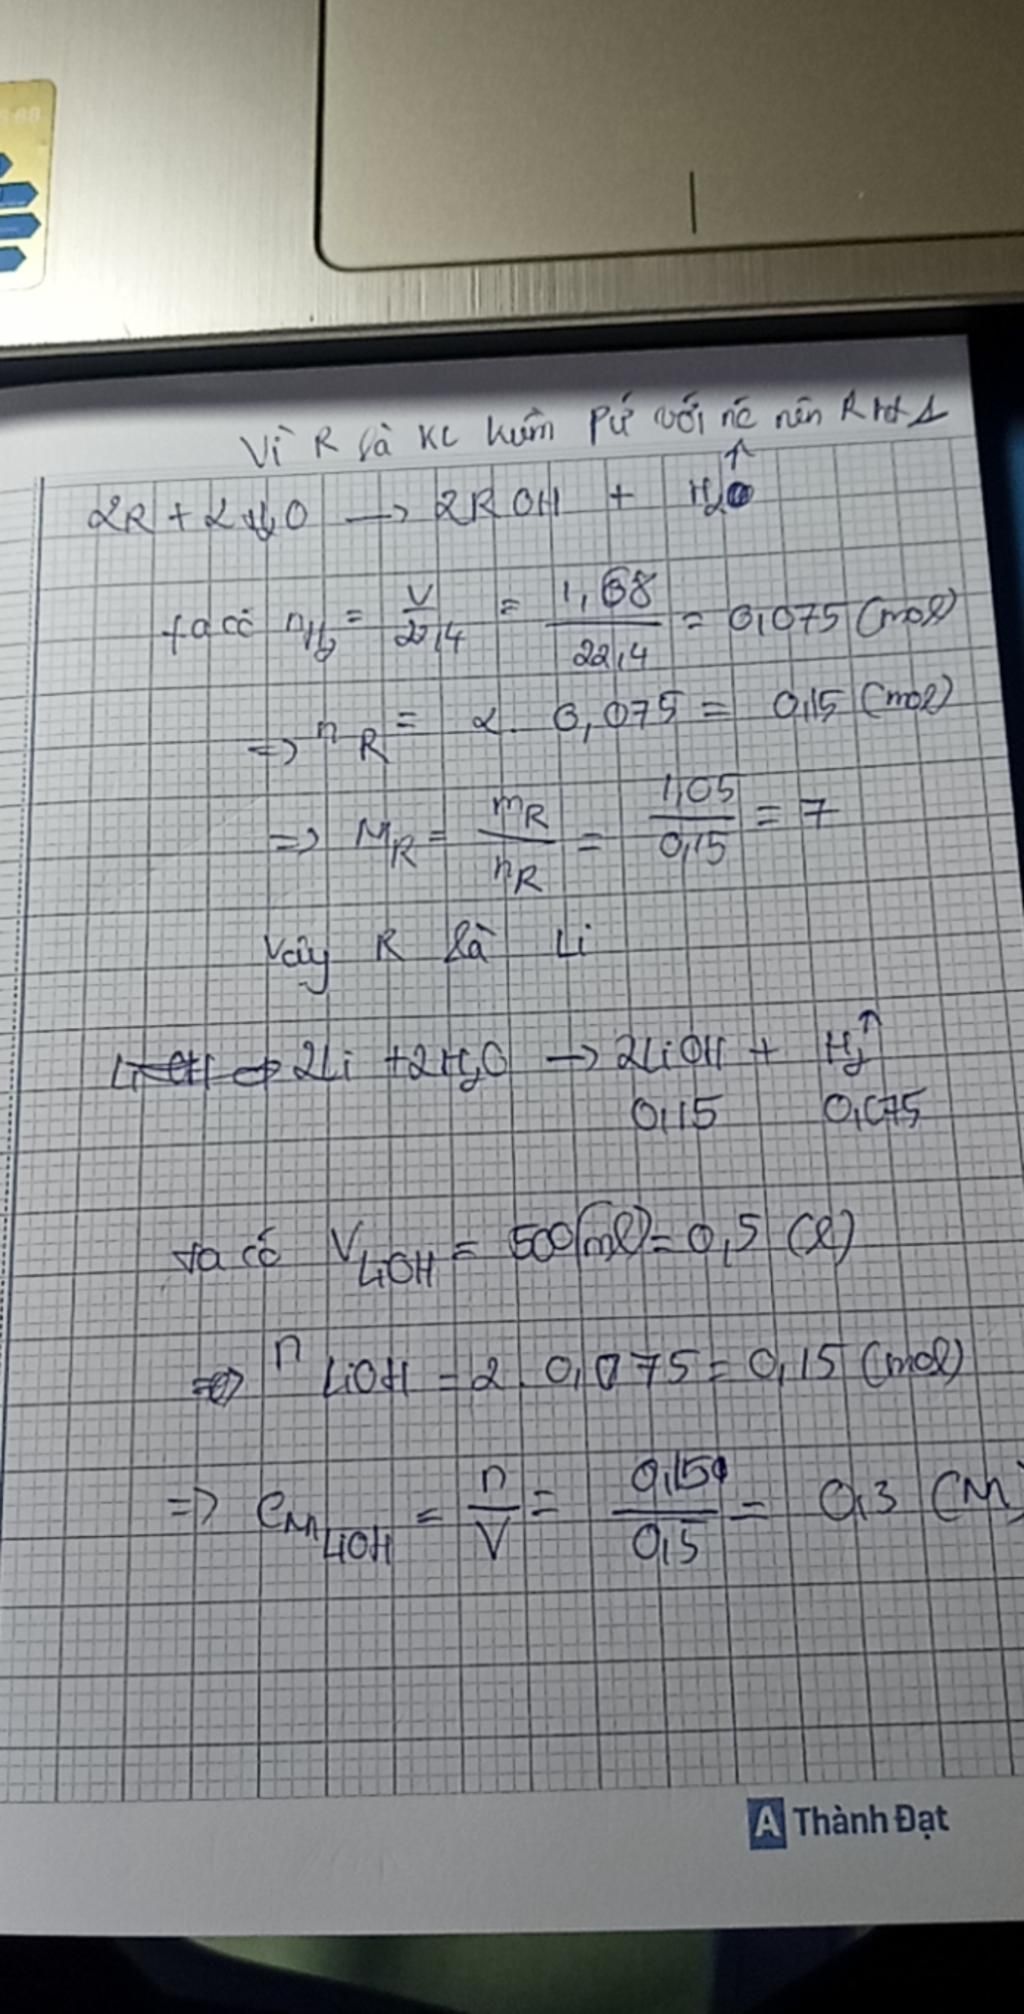 Vì R là KL kiềm Pứ với nc nên R hót 1
2R + 2H₂O → 2ROH + H₂↑
ta có n_H₂ = V/22,4 = 1,68/22,4 = 0,075 (mol)
=> n_R = 2. 0,075 = 0,15 (mol)
=> M_R = m_R/n_R = 1,05/0,15 = 7
Vậy R là Li
2Li + 2H₂O → 2LiOH + H₂↑
0,15 0,075
ta có V_LiOH = 500(ml) = 0,5 (l)
=> n_LiOH = 2. 0,075 = 0,15 (mol)
=> C_M LiOH = n/V = 0,150/0,5 = 0,3 (M)
A Thành Đạt